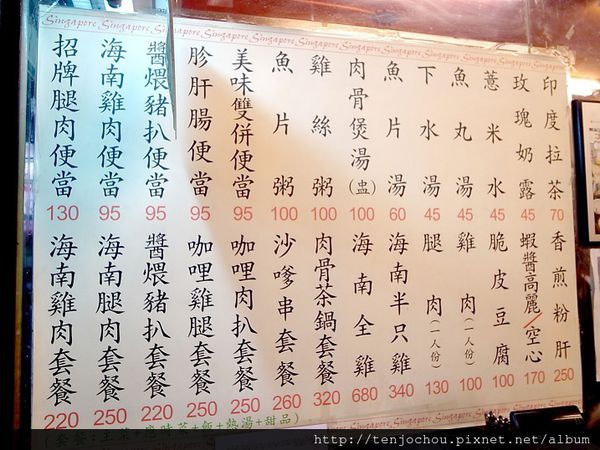 Singapore Singapore Singapore Singapore Singapore Singapore Singapore Singapore
招牌腿肉便當 130
海南雞肉便當 95
醬煨豬扒便當 95
胗肝腸便當 95
美味雙併便當 95
魚片粥 100
雞絲粥 100
肉骨煲湯(盅) 100
魚片湯 60
下水湯 45
魚丸湯 45
薏米水 45
玫瑰奶露 45
印度拉茶 70
海南雞肉套餐 220
海南腿肉套餐 250
醬煨豬扒套餐 220
咖哩雞腿套餐 250
咖哩肉扒套餐 250
沙嗲串套餐 260
肉骨茶鍋套餐 320
海南全雞 680
海南半只雞 340
腿肉(一人份) 130
雞肉(一人份) 100
脆皮豆腐 100
蝦醬高麗/空心 170
香煎粉肝 250
(套餐:主菜+時菜+飯+熱湯+甜品)
http://tenjochou.pixnet.net/album